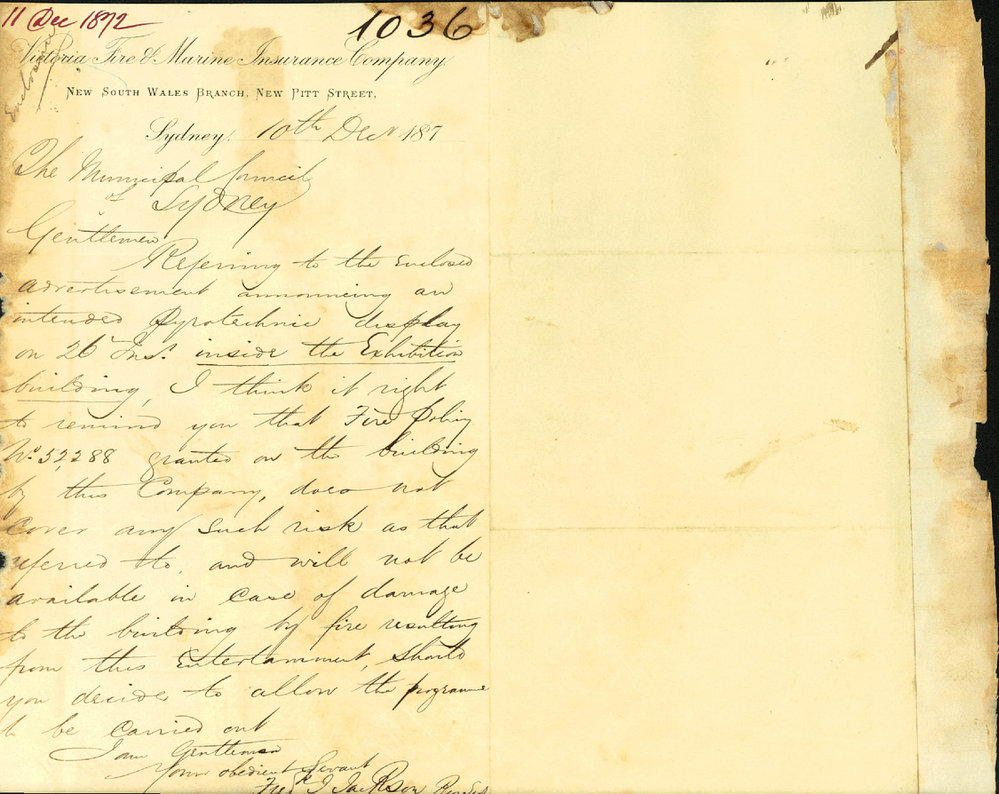 11 Dec 1872
1036
Enclosure
Victoria Fire & Marine Insurance Company
New South Wales Branch, New Pitt Street,
Sydney, 10th Decr 187
The Municipal Council
of Sydney
Gentlemen
Referring to the enclosed
advertisement announcing an
intended Pyrotechnic display
on 26 Inst. inside the Exhibition
building, I think it right
to remind you that Fire Policy
No. 52288 granted on the building
by this Company, does not
cover any such risk as that
referred to, and will not be
available in case of damage
to the building by fire resulting
from this Entertainment, should
you decide to allow the programme
to be carried out
I am Gentlemen
Your obedient Servant
Fredk J Jackson